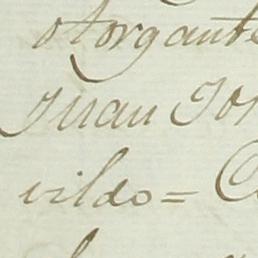 otorgante
Juan Jo
vildo =